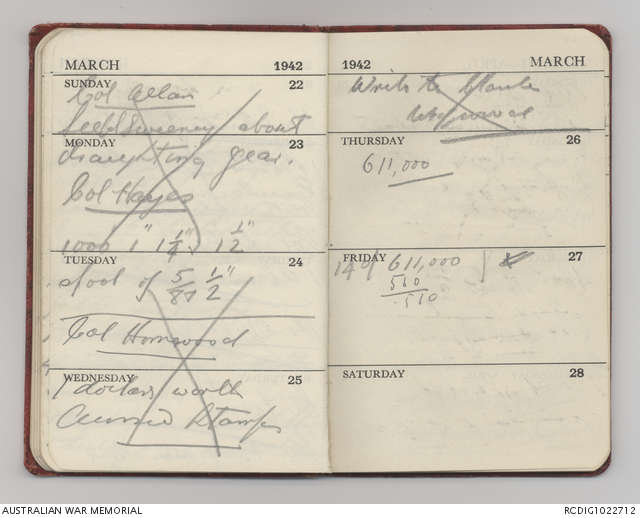 MARCH 1942
SUNDAY 22
Col Allan
Sweeney about
MONDAY 23
draughting gear.
Col Hayes
1000 1" 1 1/4" 1 1/2"
TUESDAY 24
spool of 5/8 1/2"
Col Homwood
WEDNESDAY 25
1 dollars worth
Stamps
1942 MARCH
Write to
THURSDAY 26
611,000
FRIDAY 27
14 of 611,000
510
.510
SATURDAY 28
AUSTRALIAN WAR MEMORIAL
RCDIG1022712